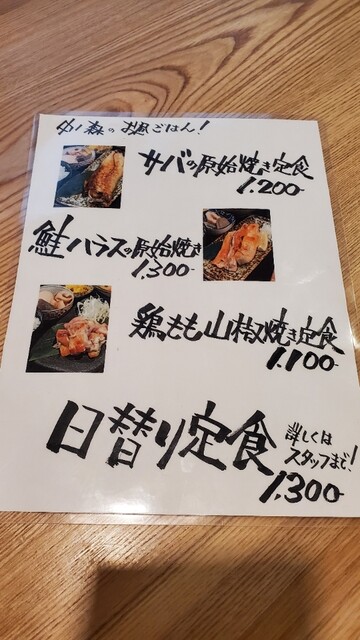 の森のお昼ごはん!
サバの原始焼き定食
1.200-
鮭ハラスの原始焼き
1.300-
鶏もも山椒焼き定食
1.100-
日替り定食
詳しくは
スタッフまで!
1.300-